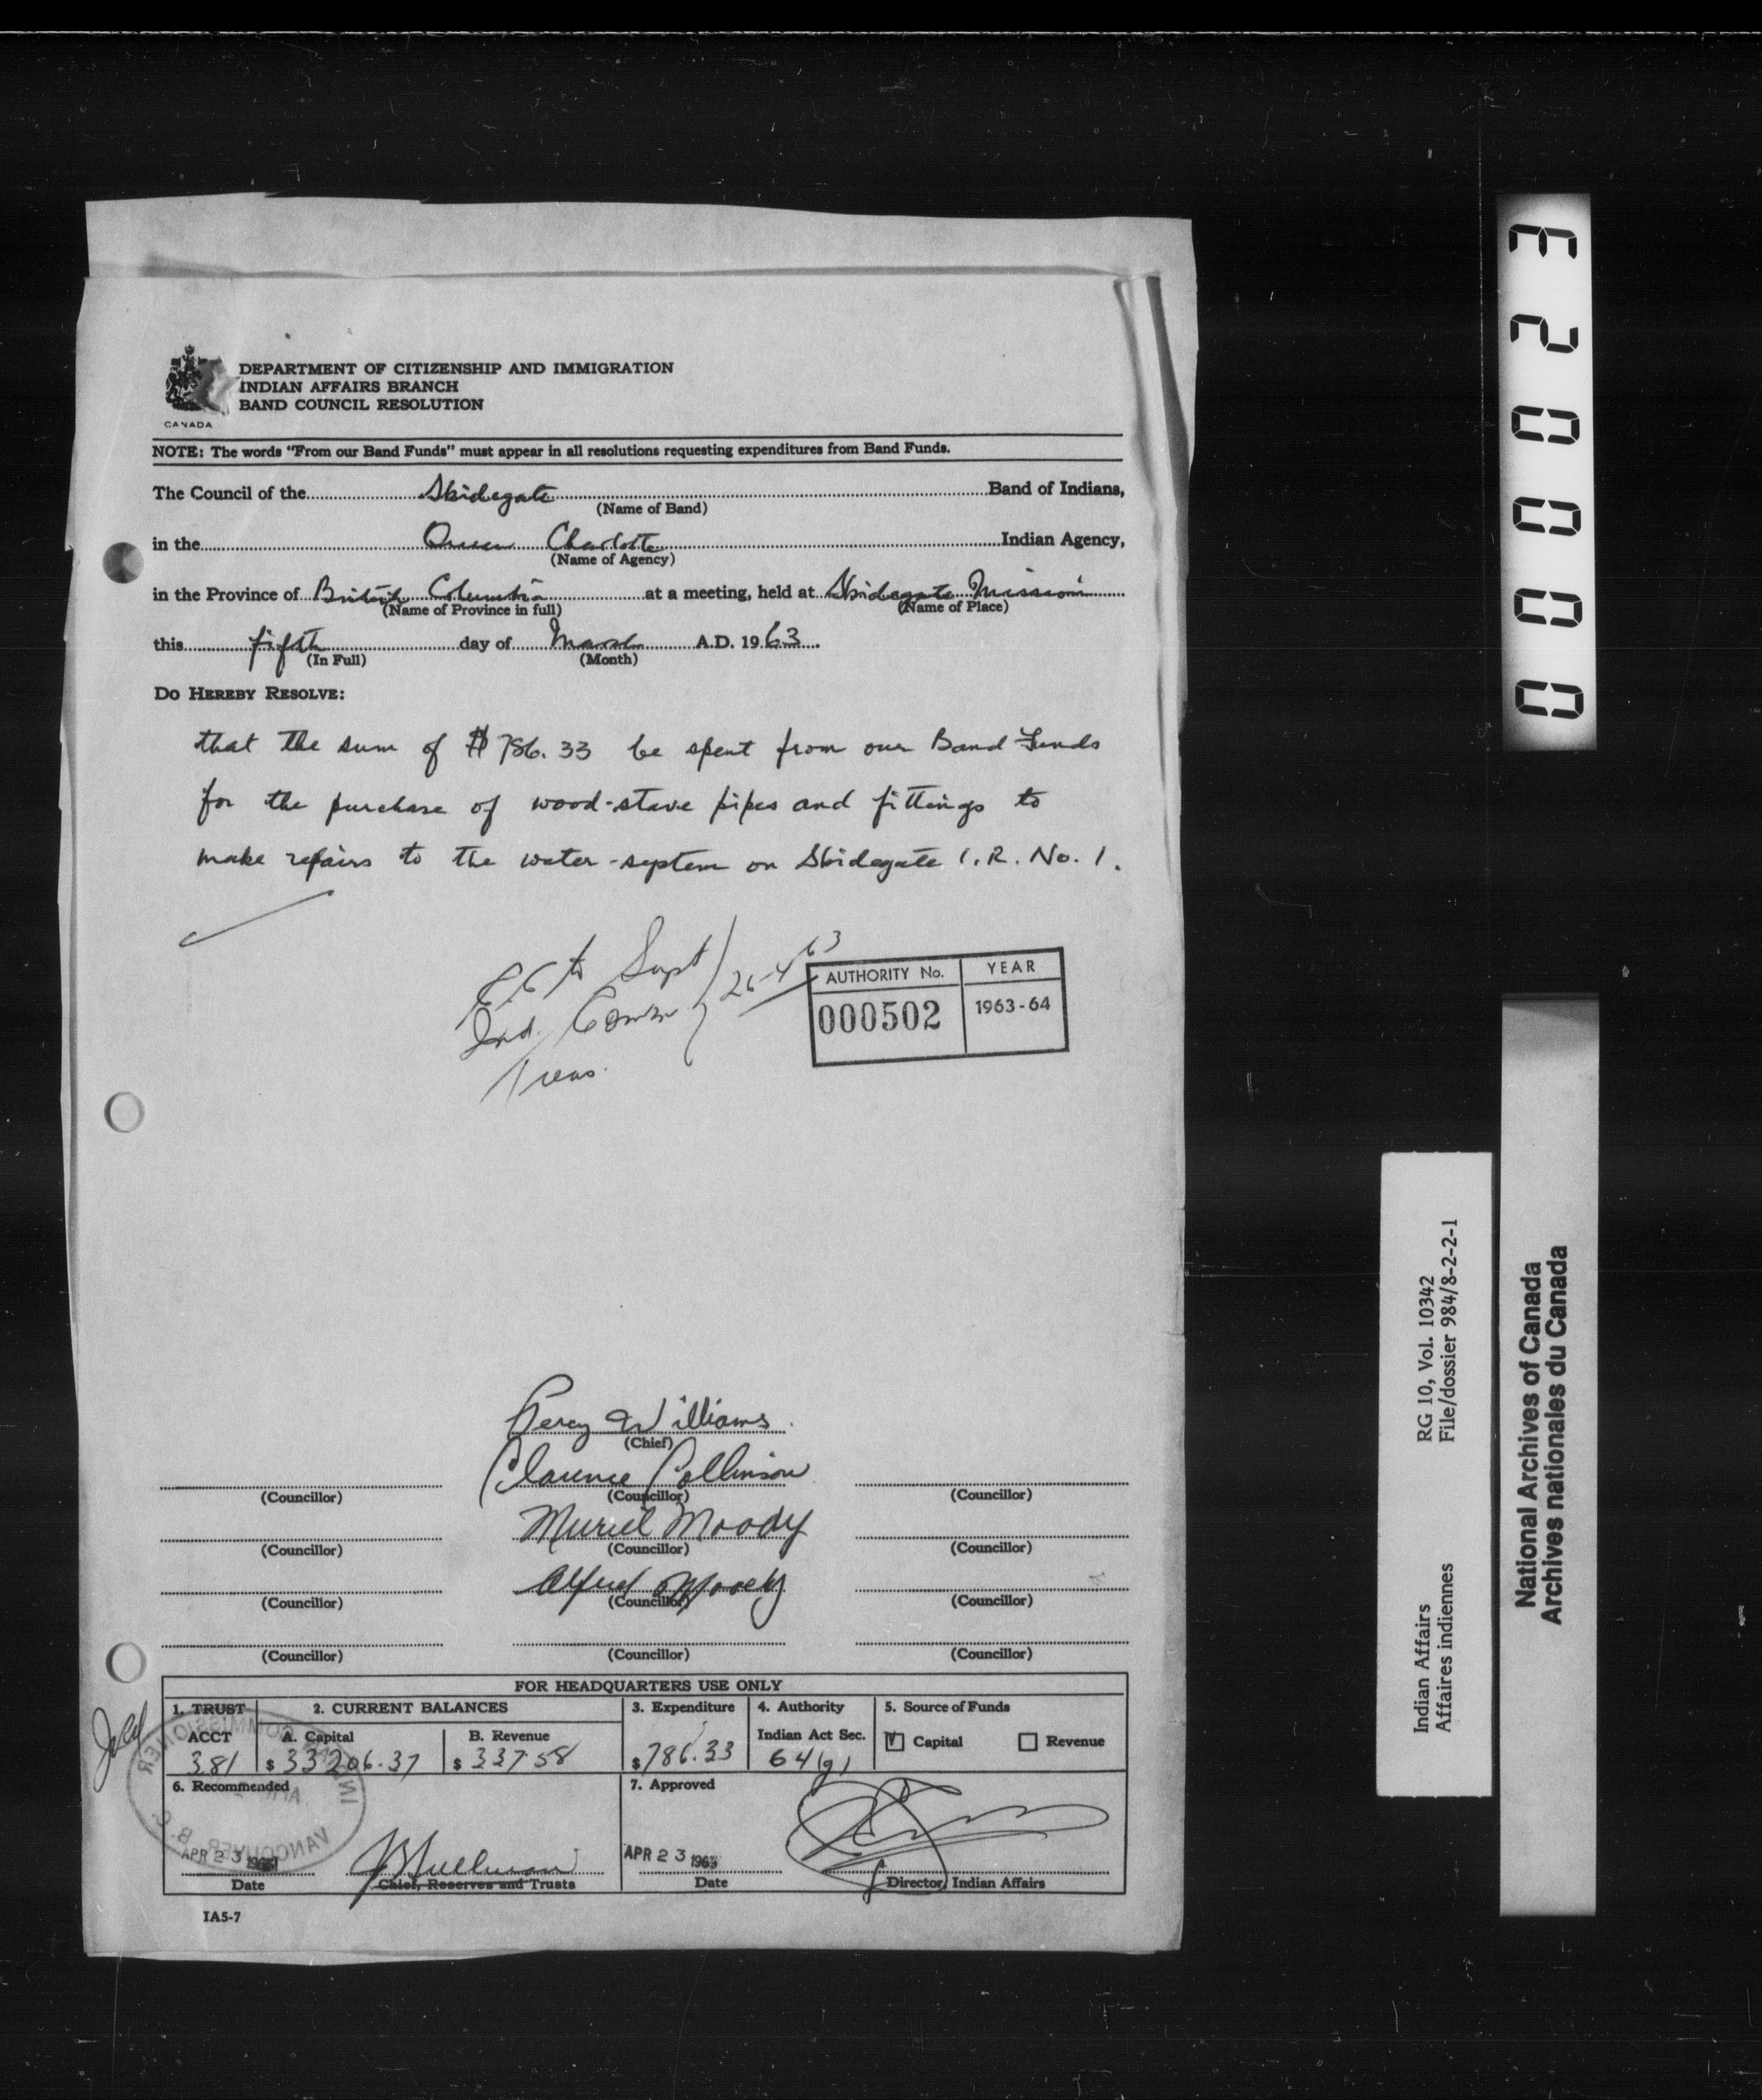 DEPARTMENT OF CITIZENSHIP AND IMMIGRATION
INDIAN AFFAIRS BRANCH
BAND COUNCIL RESOLUTION
CANADA
NOTE: The words "From our Band Funds" must appear in all resolutions requesting expenditures from Band Funds.
The Council of the Skidegate Band of Indians,
(Name of Band)
in the Queen Charlotte Indian Agency,
(Name of Agency)
in the Province of British Columbia at a meeting, held at Skidegate Mission
(Name of Province in full) (Name of Place)
this fifth day of March A.D. 1963.
(In Full) (Month)
DO HEREBY RESOLVE:
that the sum of $786.33 be spent from our Band Funds
for the purchase of wood-stave pipes and fittings to
make repairs to the water-system on Skidegate I.R. No. 1.
Supt
26-4-63
Ind. Comm
Treas.
AUTHORITY No. YEAR
000502 1963-64
Percy Williams
(Chief)
Clarence Collinson
(Councillor) (Councillor) (Councillor)
Muriel Moody
(Councillor) (Councillor) (Councillor)
Alfred Moody
(Councillor) (Councillor) (Councillor)
(Councillor) (Councillor) (Councillor)
FOR HEADQUARTERS USE ONLY
1. TRUST ACCT 2. CURRENT BALANCES 3. Expenditure 4. Authority 5. Source of Funds
A. Capital B. Revenue Indian Act Sec. Capital Revenue
381 $33206.37 $337.58 $786.33 64(g)
6. Recommended 7. Approved
INDIAN COMMISSIONER
VANCOUVER, B.C.
APR 23 1963 APR 23 1963
Date Chief, Reserves and Trusts Date Director, Indian Affairs
IA5-7
000023
RG 10, Vol. 10342
File/dossier 984/8-2-2-1
Indian Affairs
Affaires indiennes
National Archives of Canada
Archives nationales du Canada